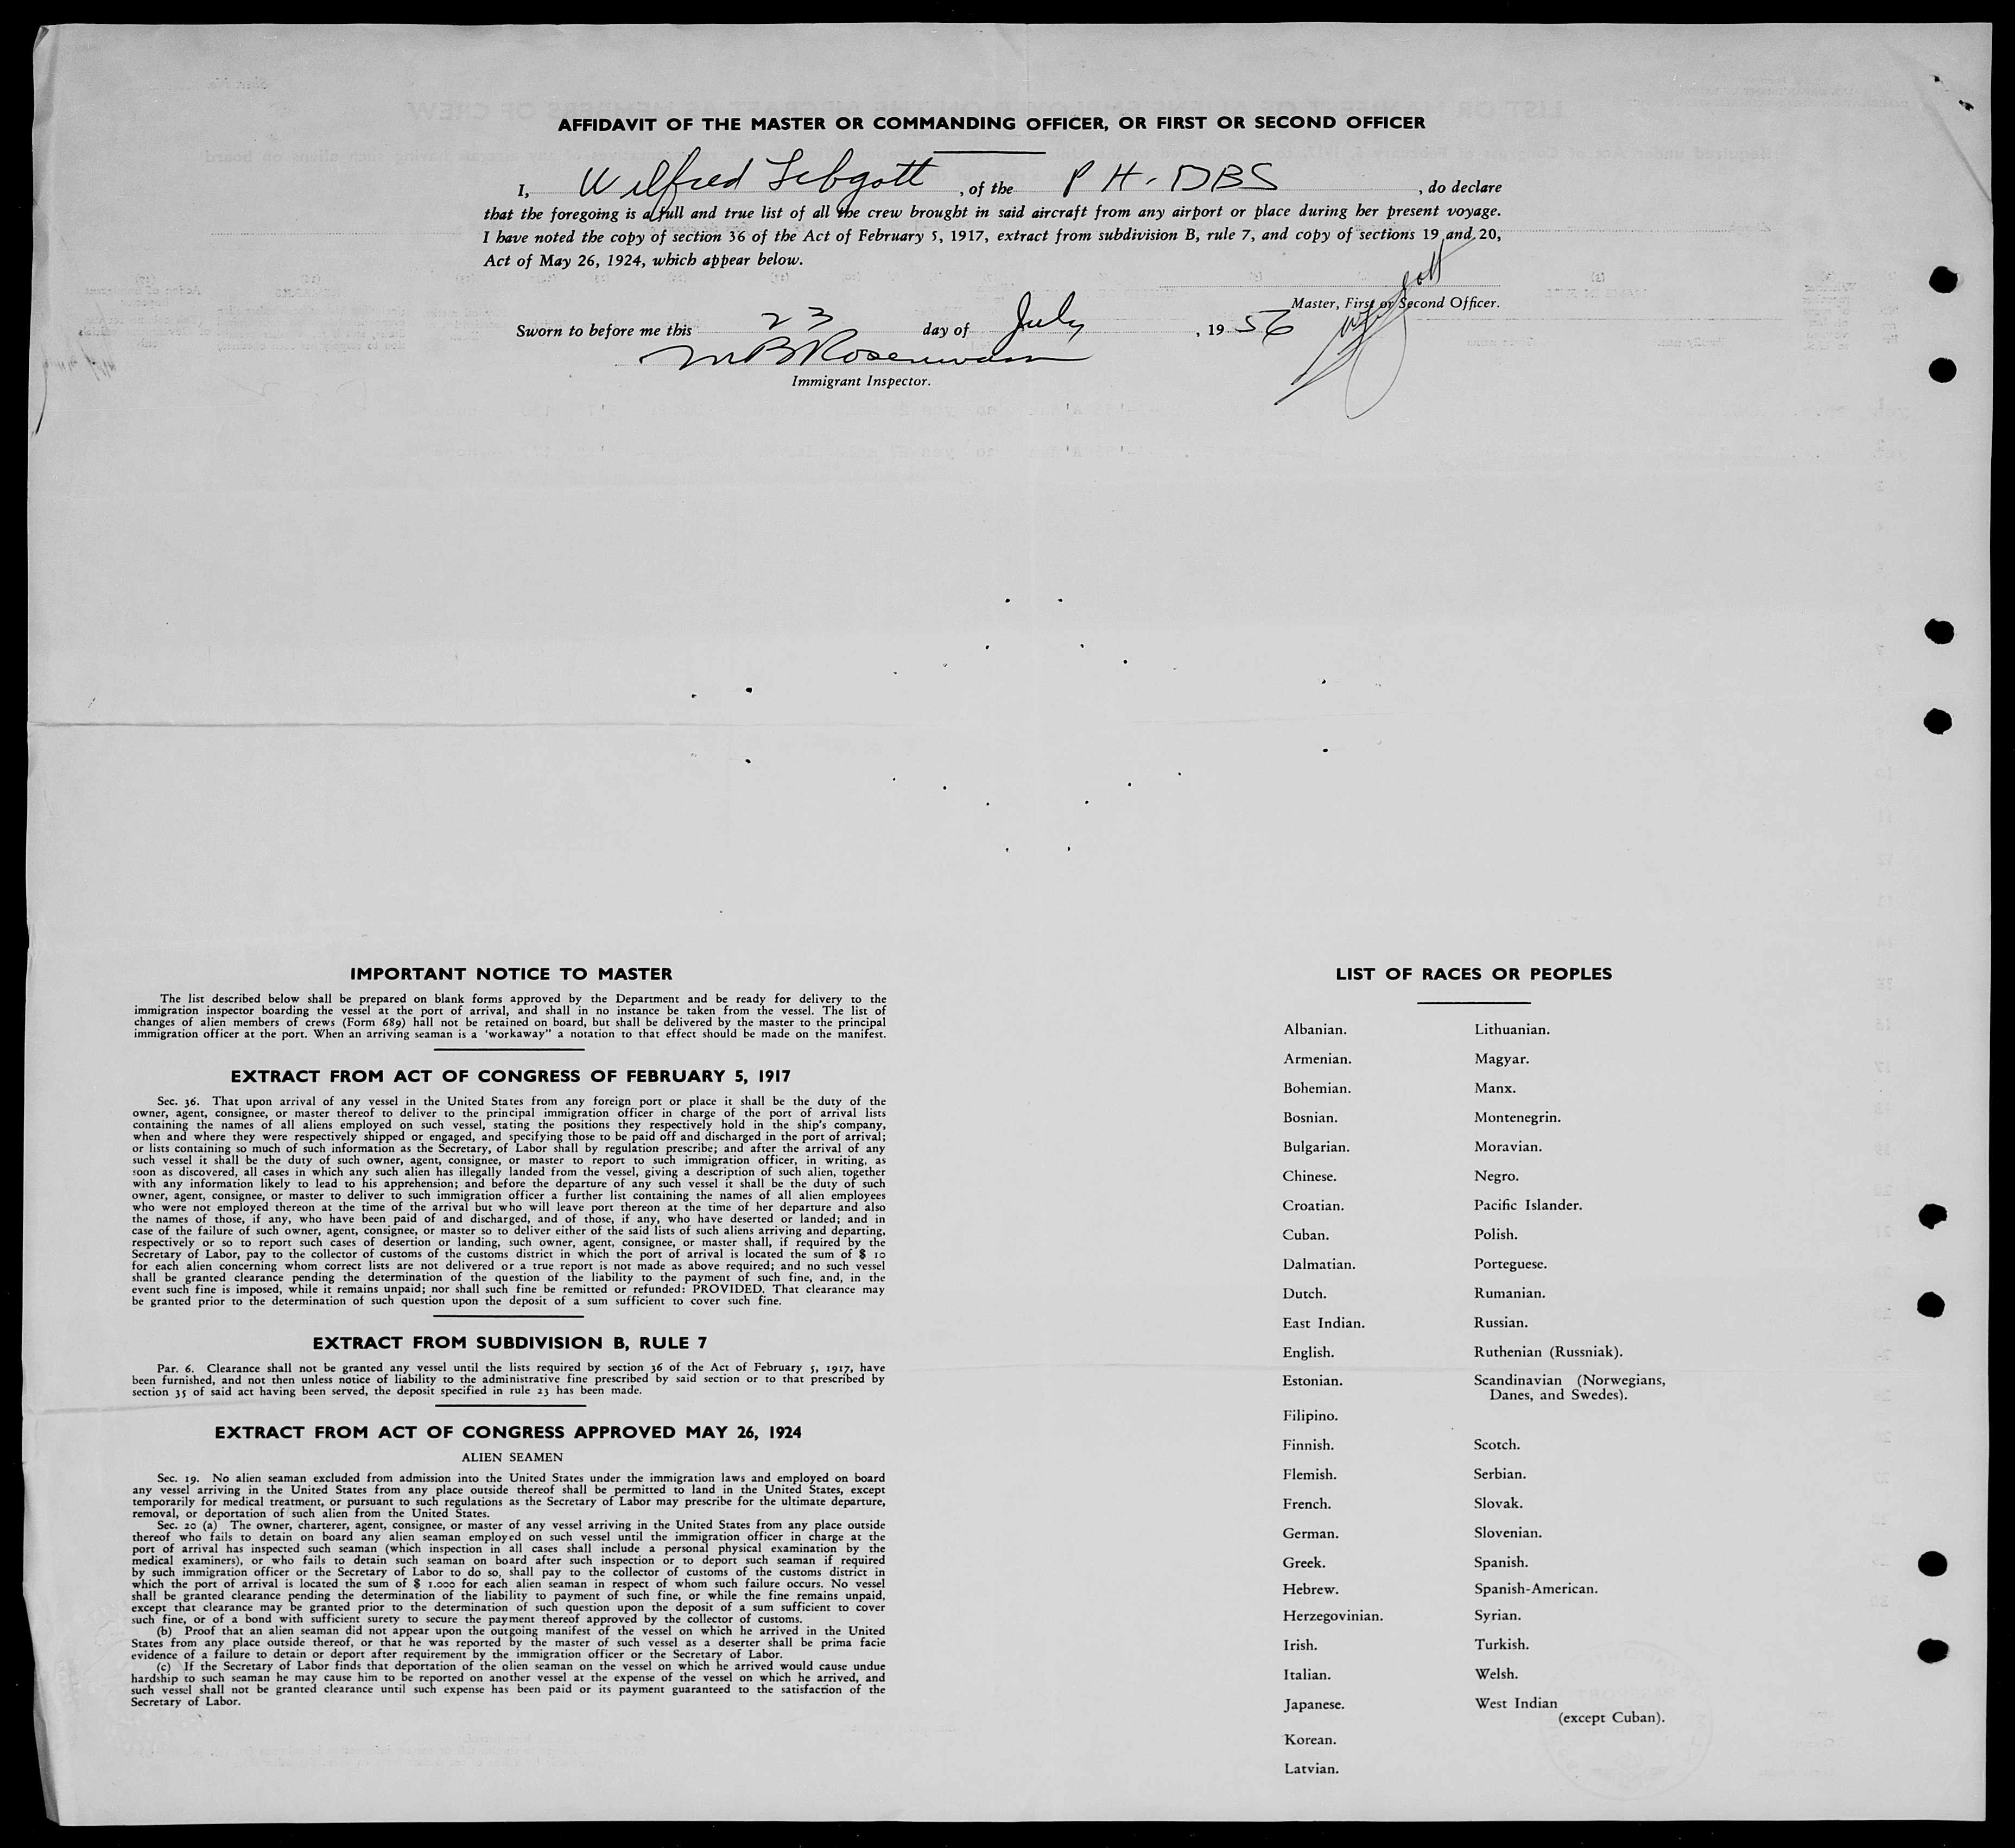 AFFIDAVIT OF THE MASTER OR COMMANDING OFFICER, OR FIRST OR SECOND OFFICER
I, Wilfred Lebgott, of the PH-DBS, do declare
that the foregoing is a full and true list of all the crew brought in said aircraft from any airport or place during her present voyage.
I have noted the copy of section 36 of the Act of February 5, 1917, extract from subdivision B, rule 7, and copy of sections 19 and 20,
Act of May 26, 1924, which appear below.
Master, First or Second Officer.
Sworn to before me this 23 day of July, 1956
Immigrant Inspector.
IMPORTANT NOTICE TO MASTER
The list described below shall be prepared on blank forms approved by the Department and be ready for delivery to the
immigration inspector boarding the vessel at the port of arrival, and shall in no instance be taken from the vessel. The list of
changes of alien members of crews (Form 689) hall not be retained on board, but shall be delivered by the master to the principal
immigration officer at the port. When an arriving seaman is a 'workaway" a notation to that effect should be made on the manifest.
EXTRACT FROM ACT OF CONGRESS OF FEBRUARY 5, 1917
Sec. 36. That upon arrival of any vessel in the United States from any foreign port or place it shall be the duty of the
owner, agent, consignee, or master thereof to deliver to the principal immigration officer in charge of the port of arrival lists
containing the names of all aliens employed on such vessel, stating the positions they respectively hold in the ship's company,
when and where they were respectively shipped or engaged, and specifying those to be paid off and discharged in the port of arrival;
or lists containing so much of such information as the Secretary, of Labor shall by regulation prescribe; and after the arrival of any
such vessel it shall be the duty of such owner, agent, consignee, or master to report to such immigration officer, in writing, as
soon as discovered, all cases in which any such alien has illegally landed from the vessel, giving a description of such alien, together
with any information likely to lead to his apprehension; and before the departure of any such vessel it shall be the duty of such
owner, agent, consignee, or master to deliver to such immigration officer a further list containing the names of all alien employees
who were not employed thereon at the time of the arrival but who will leave port thereon at the time of her departure and also
the names of those, if any, who have been paid of and discharged, and of those, if any, who have deserted or landed; and in
case of the failure of such owner, agent, consignee, or master so to deliver either of the said lists of such aliens arriving and departing,
respectively or so to report such cases of desertion or landing, such owner, agent, consignee, or master shall, if required by the
Secretary of Labor, pay to the collector of customs of the customs district in which the port of arrival is located the sum of $ 10
for each alien concerning whom correct lists are not delivered or a true report is not made as above required; and no such vessel
shall be granted clearance pending the determination of the question of the liability to the payment of such fine, and, in the
event such fine is imposed, while it remains unpaid; nor shall such fine be remitted or refunded: PROVIDED. That clearance may
be granted prior to the determination of such question upon the deposit of a sum sufficient to cover such fine.
EXTRACT FROM SUBDIVISION B, RULE 7
Par. 6. Clearance shall not be granted any vessel until the lists required by section 36 of the Act of February 5, 1917, have
been furnished, and not then unless notice of liability to the administrative fine prescribed by said section or to that prescribed by
section 35 of said act having been served, the deposit specified in rule 23 has been made.
EXTRACT FROM ACT OF CONGRESS APPROVED MAY 26, 1924
ALIEN SEAMEN
Sec. 19. No alien seaman excluded from admission into the United States under the immigration laws and employed on board
any vessel arriving in the United States from any place outside thereof shall be permitted to land in the United States, except
temporarily for medical treatment, or pursuant to such regulations as the Secretary of Labor may prescribe for the ultimate departure,
removal, or deportation of such alien from the United States.
Sec. 20 (a) The owner, charterer, agent, consignee, or master of any vessel arriving in the United States from any place outside
thereof who fails to detain on board any alien seaman employed on such vessel until the immigration officer in charge at the
port of arrival has inspected such seaman (which inspection in all cases shall include a personal physical examination by the
medical examiners), or who fails to detain such seaman on board after such inspection or to deport such seaman if required
by such immigration officer or the Secretary of Labor to do so, shall pay to the collector of customs of the customs district in
which the port of arrival is located the sum of $ 1.000 for each alien seaman in respect of whom such failure occurs. No vessel
shall be granted clearance pending the determination of the liability to payment of such fine, or while the fine remains unpaid,
except that clearance may be granted prior to the determination of such question upon the deposit of a sum sufficient to cover
such fine, or of a bond with sufficient surety to secure the payment thereof approved by the collector of customs.
(b) Proof that an alien seaman did not appear upon the outgoing manifest of the vessel on which he arrived in the United
States from any place outside thereof, or that he was reported by the master of such vessel as a deserter shall be prima facie
evidence of a failure to detain or deport after requirement by the immigration officer or the Secretary of Labor.
(c) If the Secretary of Labor finds that deportation of the olien seaman on the vessel on which he arrived would cause undue
hardship to such seaman he may cause him to be reported on another vessel at the expense of the vessel on which he arrived, and
such vessel shall not be granted clearance until such expense has been paid or its payment guaranteed to the satisfaction of the
Secretary of Labor.
LIST OF RACES OR PEOPLES
Albanian.
Armenian.
Bohemian.
Bosnian.
Bulgarian.
Chinese.
Croatian.
Cuban.
Dalmatian.
Dutch.
East Indian.
English.
Estonian.
Filipino.
Finnish.
Flemish.
French.
German.
Greek.
Hebrew.
Herzegovinian.
Irish.
Italian.
Japanese.
Korean.
Latvian.
Lithuanian.
Magyar.
Manx.
Montenegrin.
Moravian.
Negro.
Pacific Islander.
Polish.
Porteguese.
Rumanian.
Russian.
Ruthenian (Russniak).
Scandinavian (Norwegians,
Danes, and Swedes).
Scotch.
Serbian.
Slovak.
Slovenian.
Spanish.
Spanish-American.
Syrian.
Turkish.
Welsh.
West Indian
(except Cuban).